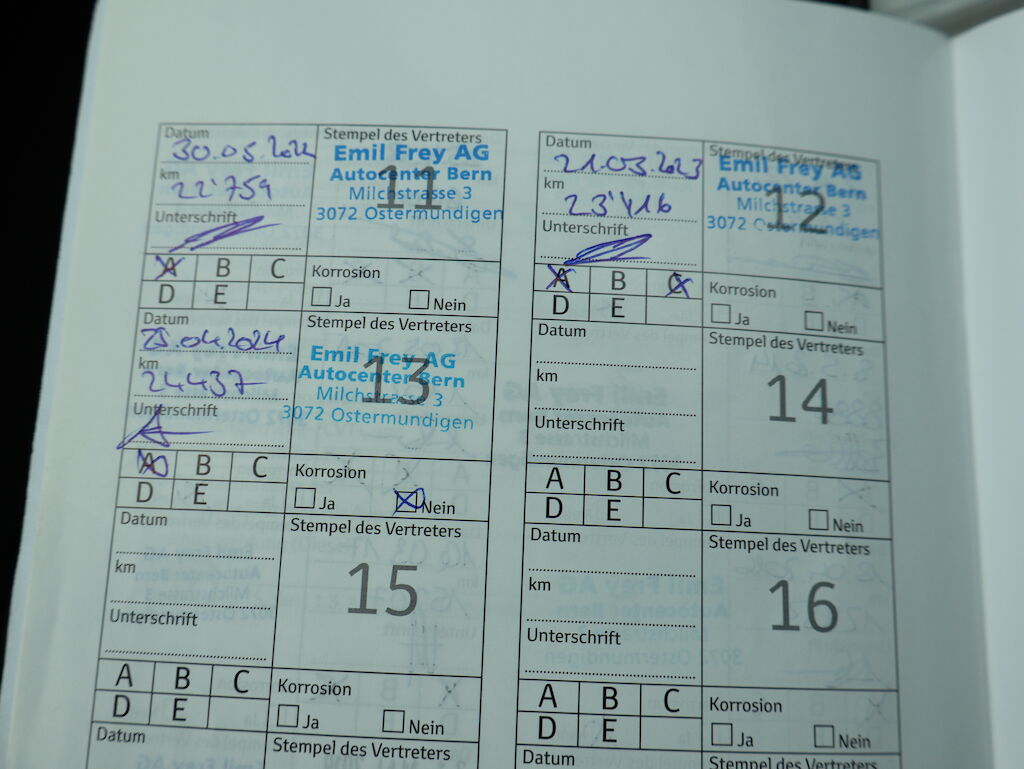 Datum
30.05.2022
km
22'759
Unterschrift
Stempel des Vertreters
Emil Frey AG
Autocenter Bern
Milchstrasse 3
3072 Ostermundigen
11
A B C
D E
Korrosion
Ja Nein
Datum
21.03.2023
km
23'416
Unterschrift
Stempel des Vertreters
Emil Frey AG
Autocenter Bern
Milchstrasse 3
3072 Ostermundigen
12
A B C
D E
Korrosion
Ja Nein
Datum
25.04.2024
km
24437
Unterschrift
Stempel des Vertreters
Emil Frey AG
Autocenter Bern
Milchstrasse 3
3072 Ostermundigen
13
A B C
D E
Korrosion
Ja Nein
Datum
km
Unterschrift
Stempel des Vertreters
14
A B C
D E
Korrosion
Ja Nein
Datum
km
Unterschrift
Stempel des Vertreters
15
A B C
D E
Korrosion
Ja Nein
Datum
km
Unterschrift
Stempel des Vertreters
16
A B C
D E
Korrosion
Ja Nein
Datum
Stempel des Vertreters
Datum
Stempel des Vertreters